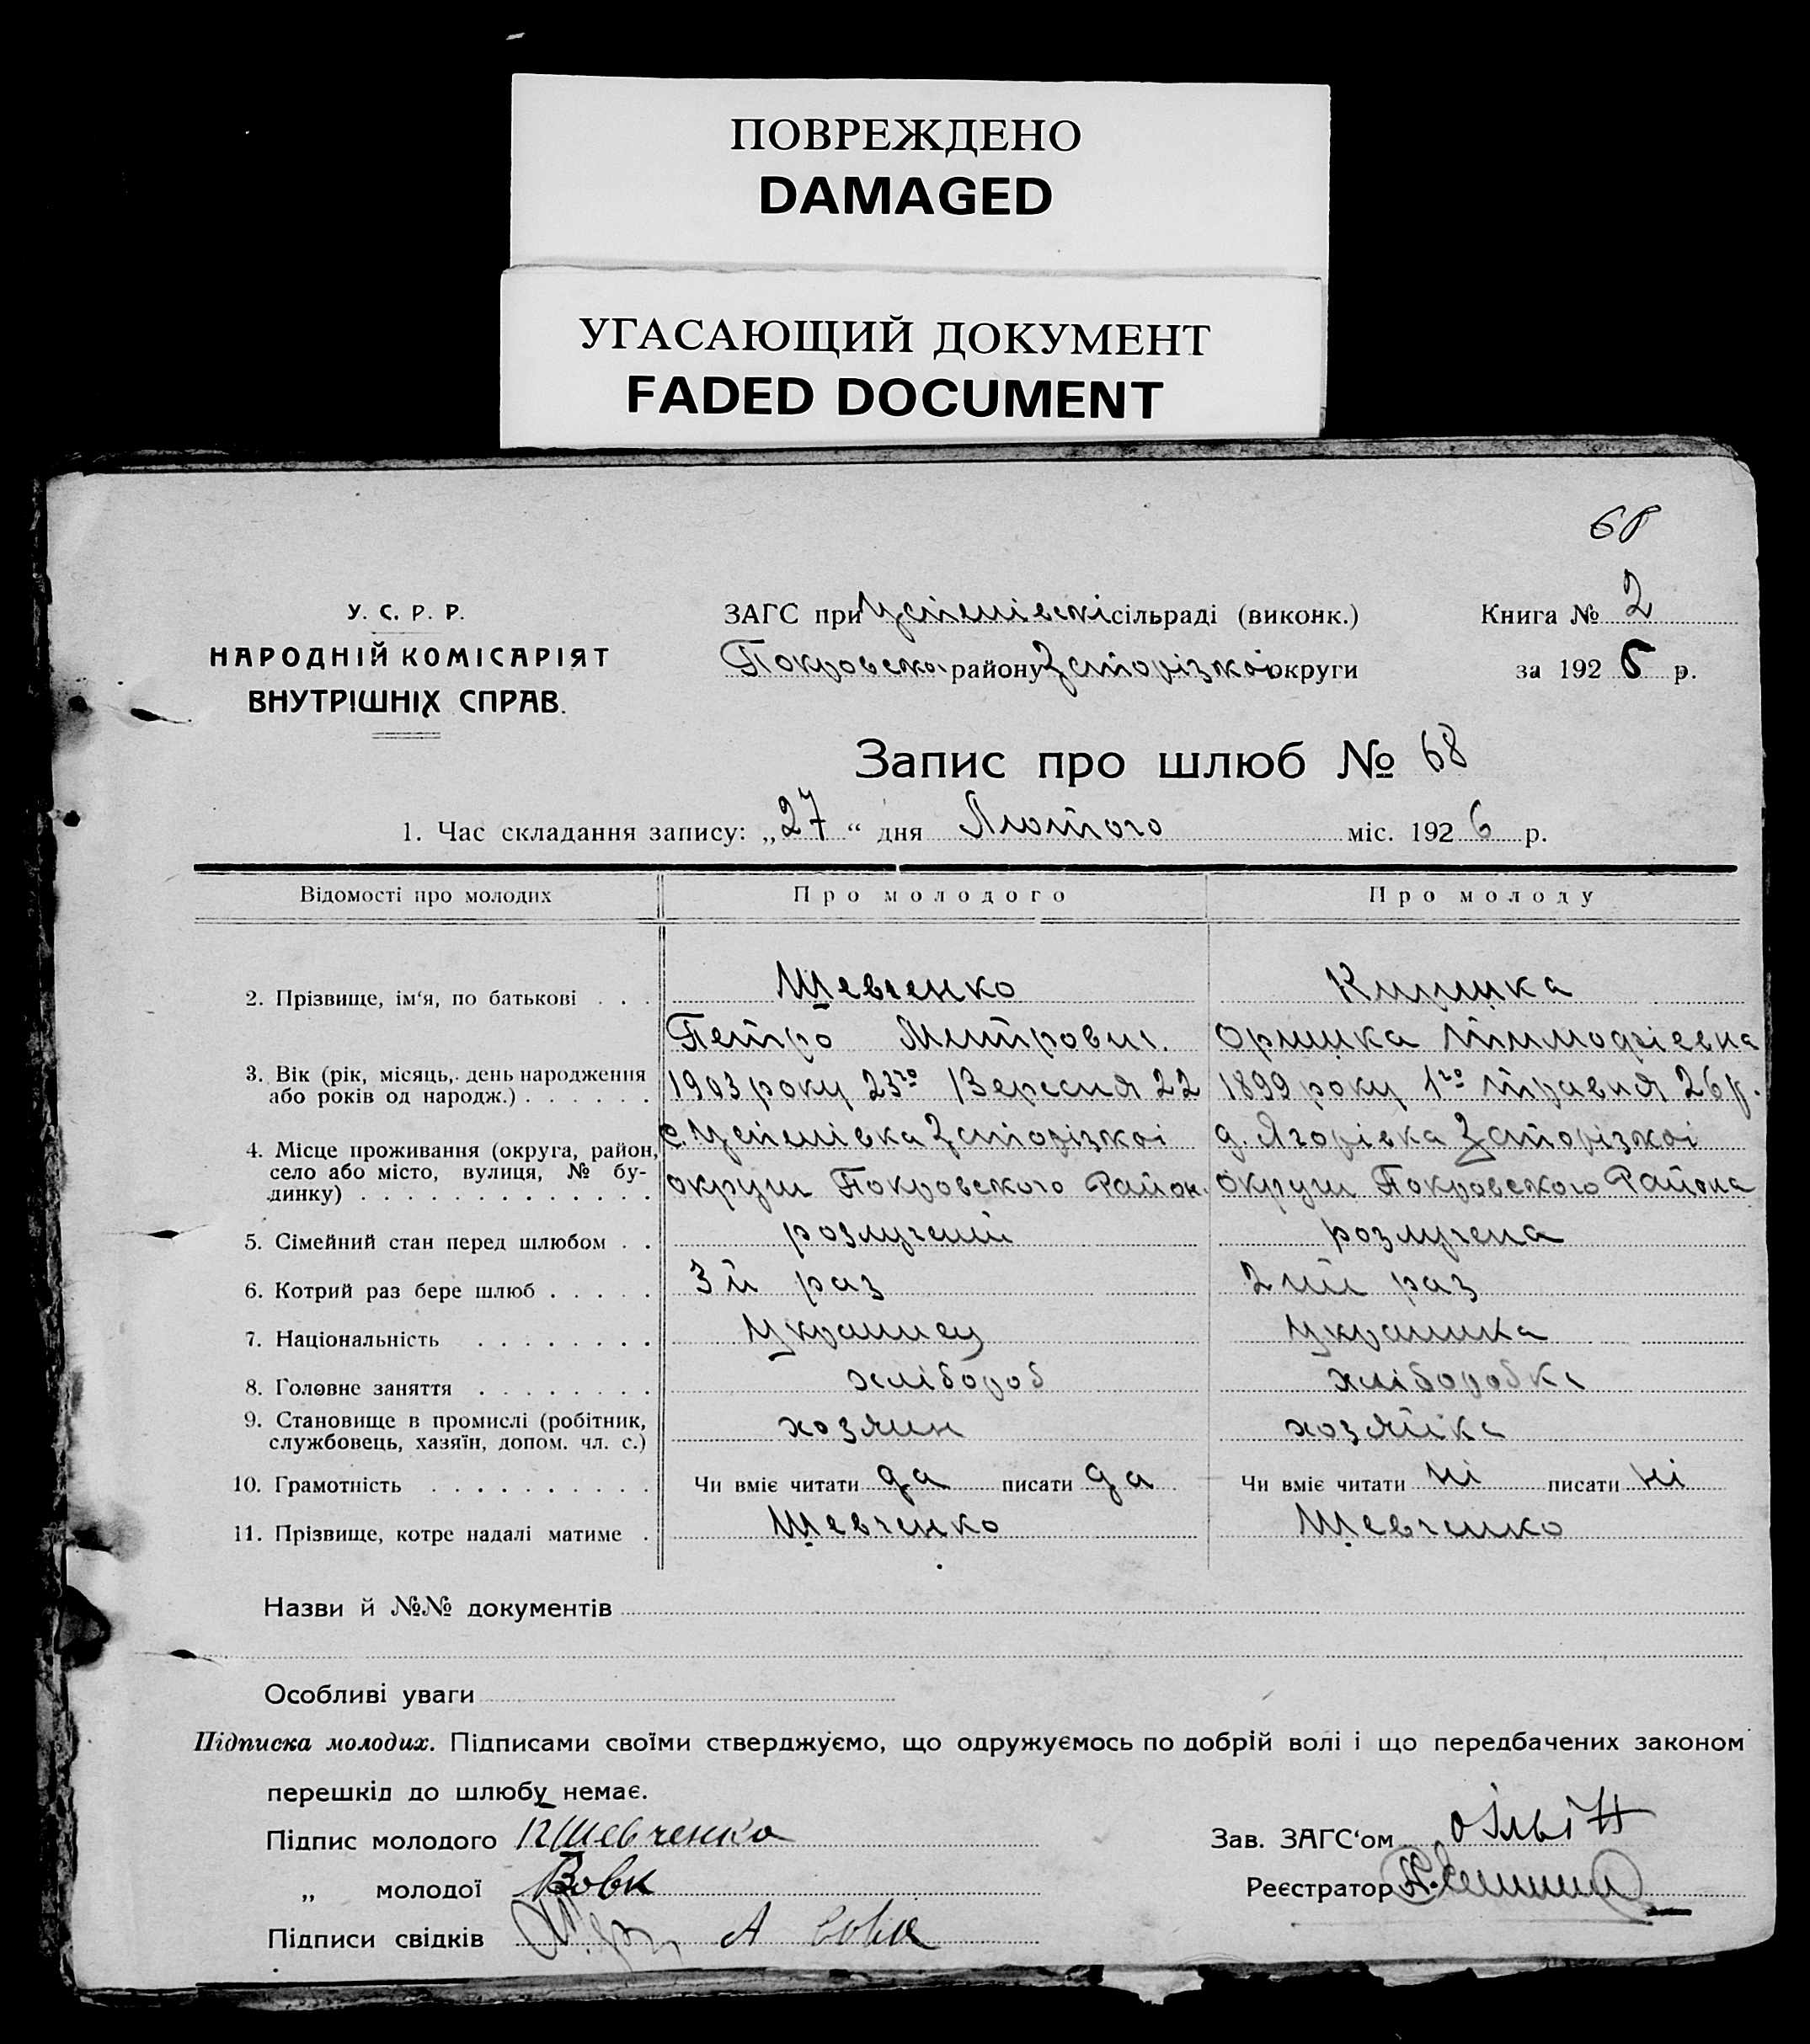 ПОВРЕЖДЕНО
DAMAGED
УГАСАЮЩИЙ ДОКУМЕНТ
FADED DOCUMENT
68
У. С. Р. Р.
НАРОДНІЙ КОМІСАРІЯТ
ВНУТРІШНІХ СПРАВ.
ЗАГС при Успенівскі сільраді (виконк.)
Книга № 2
Покровско району Запорізкоі округи
за 1926 р.
Запис про шлюб № 68
1. Час складання запису: „27“ дня Лютого міс. 1926 р.
Відомості про молодих Про молодого Про молоду
2. Прізвище, ім‘я, по батькові . . . Шевченко
Петро Митрович. Тимофіевна
3. Вік (рік, місяць, день народження або років од народж.) . . . . . . 1903 року 23го Вересня 22 1899 року 1го травня 26 р.
4. Місце проживання (округа, район, село або місто, вулиця, № будинку) . . . . . . . . . . . . . с. Успенівка Запорізкоі д. Ягорівка Запорізкоі
округи Покровского Район. округи Покровского Района
5. Сімейний стан перед шлюбом . . розлучений розлучена
6. Котрий раз бере шлюб . . . . . 3й раз 2ий раз
7. Національність . . . . . . . . Украинец Украинка
8. Головне заняття . . . . . . . . хлібороб хліборобка
9. Становище в промислі (робітник, службовець, хазяїн, допом. чл. с.) хозяин хозяйка
10. Грамотність . . . . . . . . . . Чи вміє читати да писати да Чи вміє читати ні писати ні
11. Прізвище, котре надалі матиме . Шевченко Шевченко
Назви й №№ документів
Особливі уваги
Підписка молодих. Підписами своїми стверджуємо, що одружуємось по добрій волі і що передбачених законом
перешкід до шлюбу немає.
Підпис молодого ПШевченко Зав. ЗАГС‘ом
„ молодої Вовк Реєстратор
Підписи свідків А Вовк